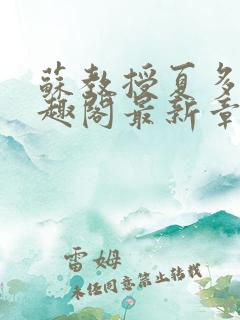 蘇教授夏多
趣閣最新章
雷姆
未经同意禁止转载